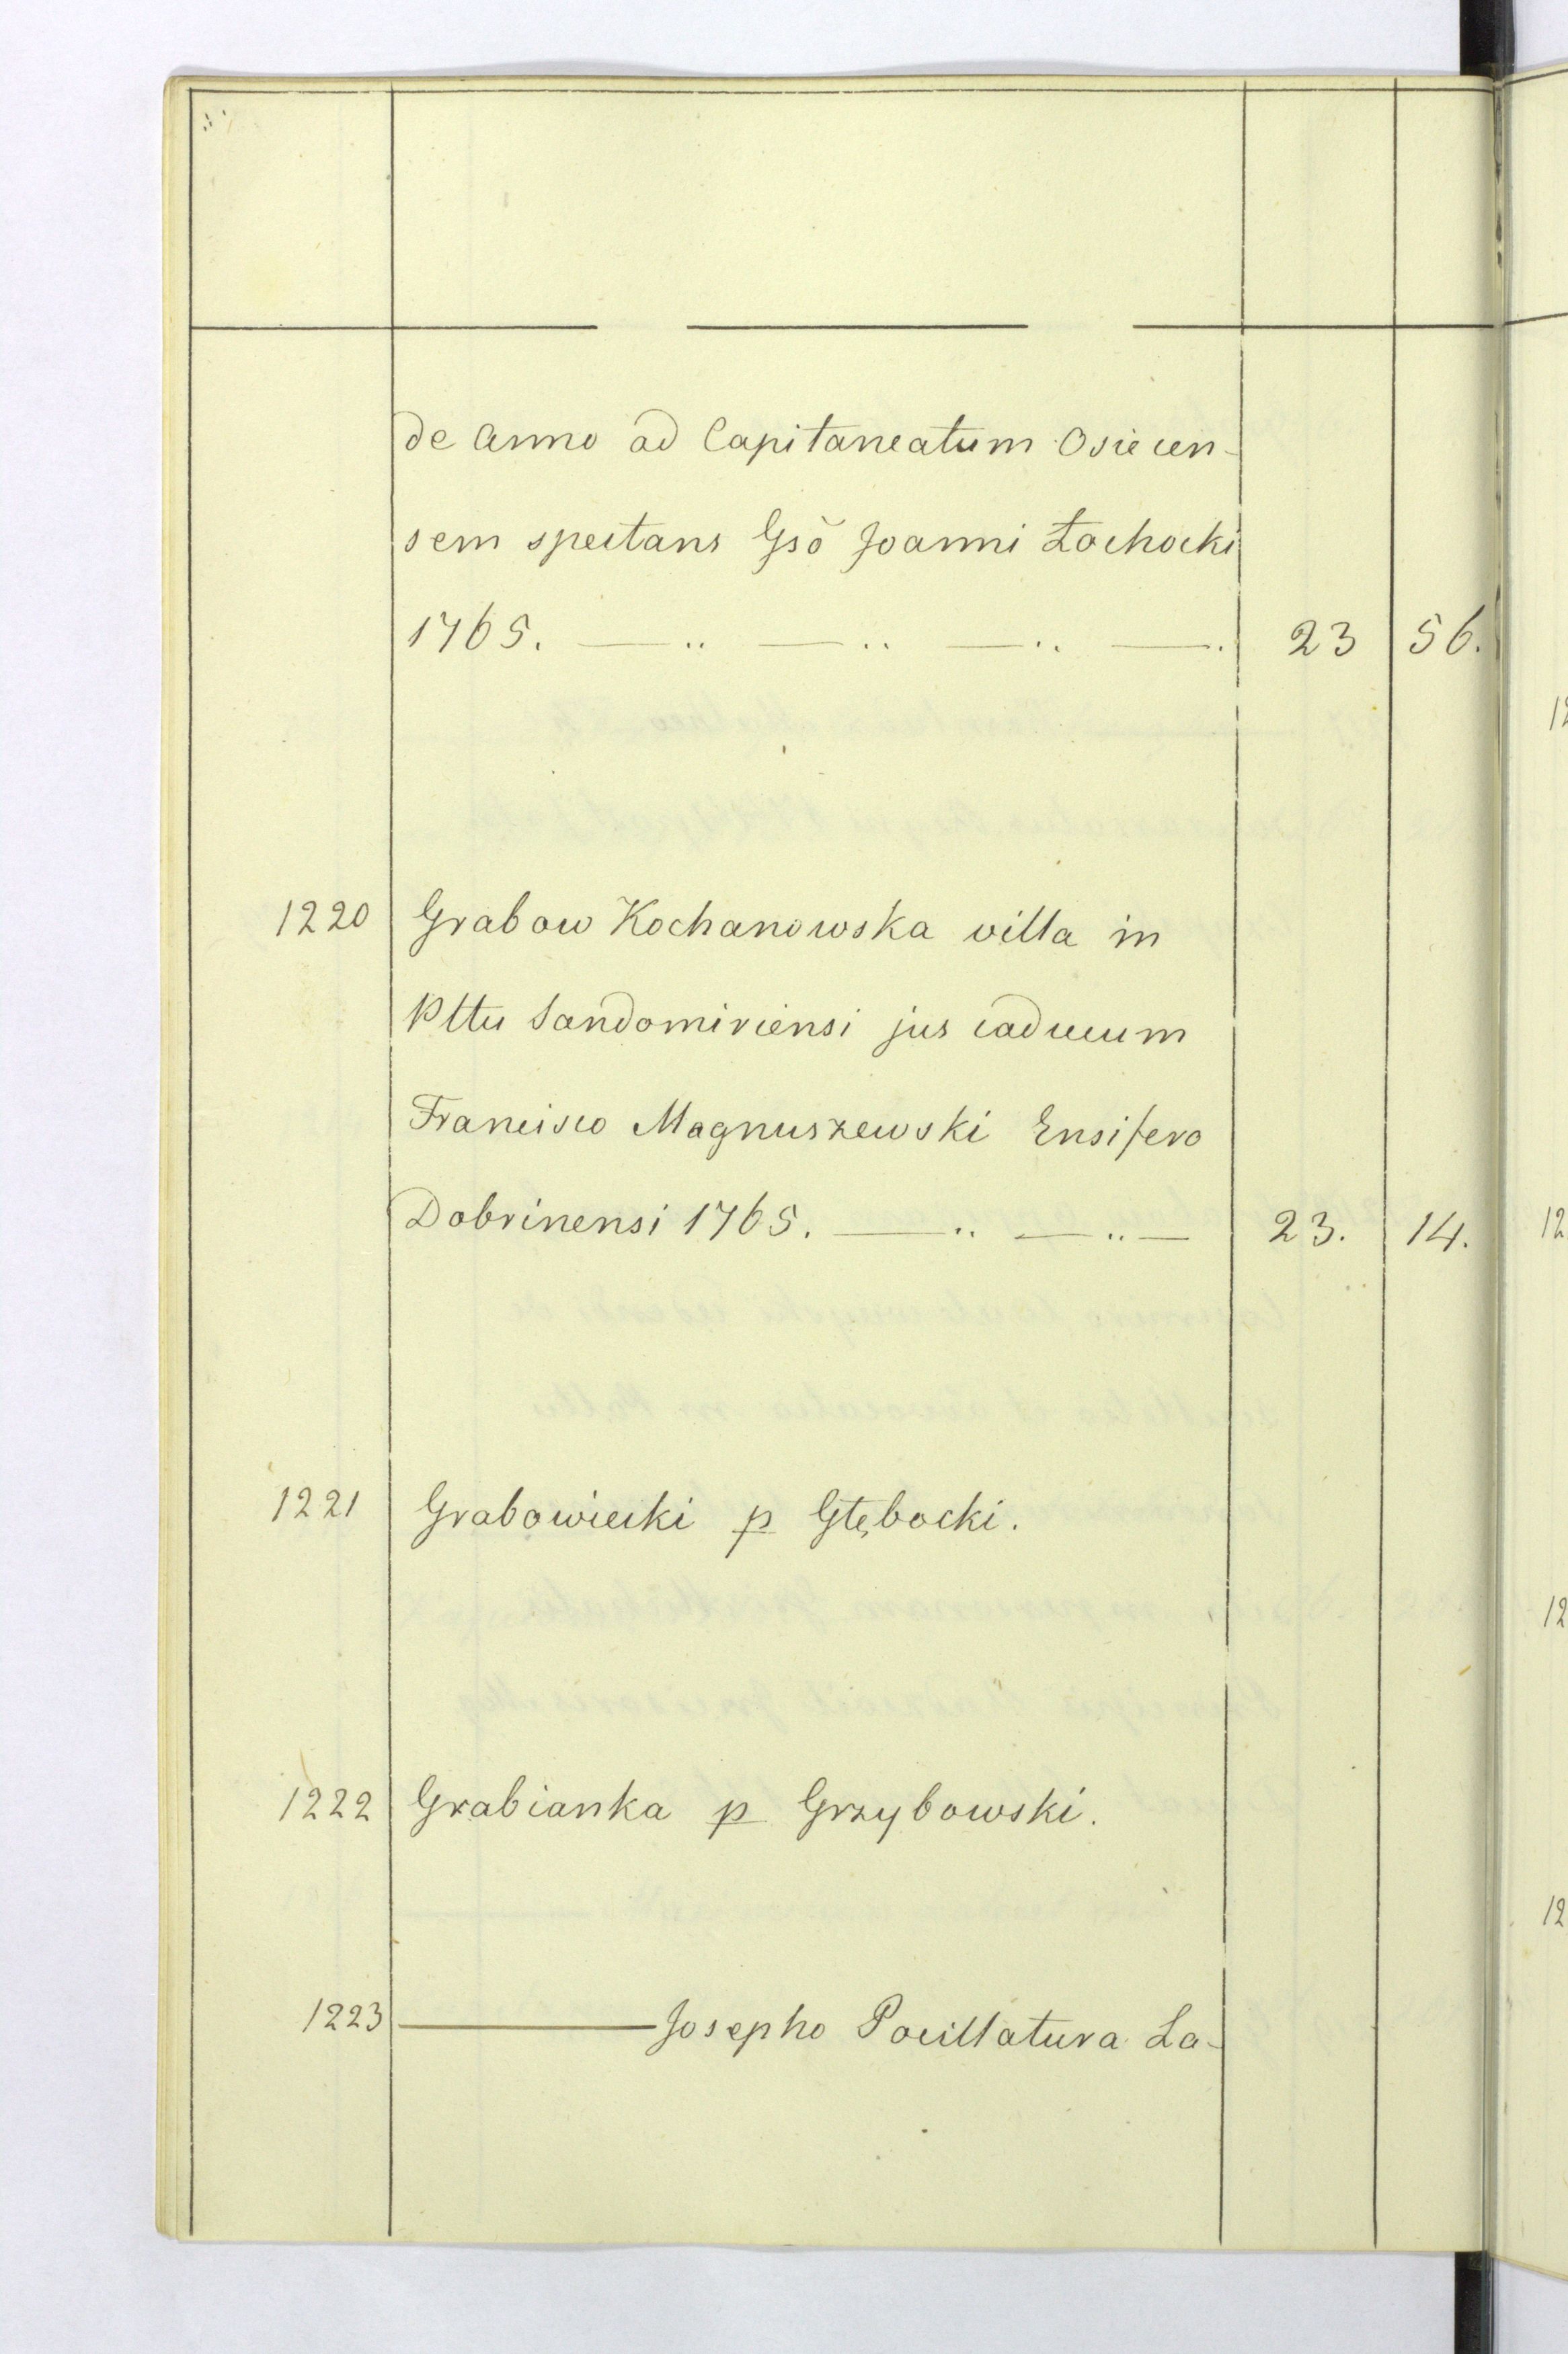 de Anno ad Capitaneatum Osiecen-
sem spectans Gsõ Joanni Łochocki
1765. — .. — .. — .. — . 23 56.
1220 Grabow Kochanowska villa in
Pttu Sandomiriensi jus caducum
Francisco Magnuszewski Ensifero
Dobrinensi 1765. — .. — .. — 23. 14.
1221 Grabowiecki p Głębocki.
1222 Grabianka p Grzybowski.
1223 ——— Josepho Pocillatura La-